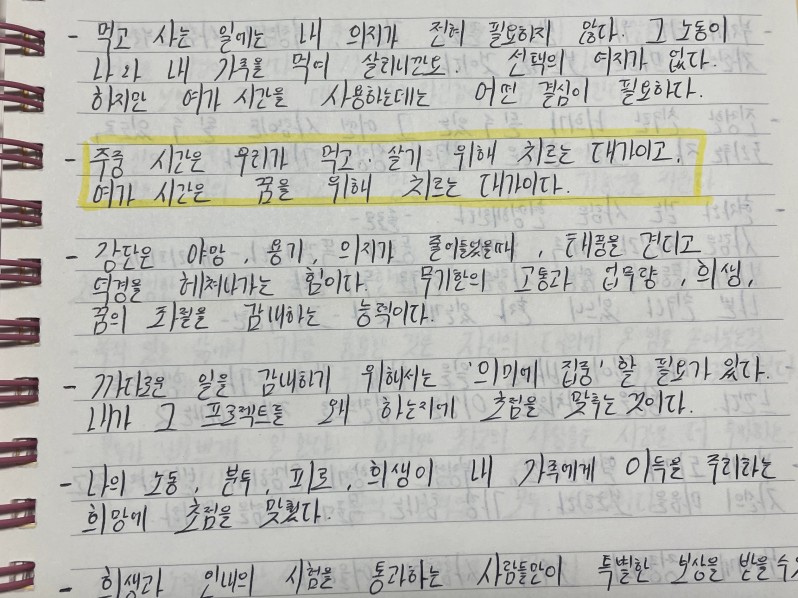 - 먹고 사는 일에는 내 의지가 전혀 필요하지 않다. 그 노동이
나와 내 가족을 먹여 살리니깐요. 선택의 여지가 없다.
하지만 여가 시간을 사용하는데는 어떤 결심이 필요하다.
- 주중 시간은 우리가 먹고. 살기 위해 치르는 대가이고.
여가 시간은 꿈을 위해 치르는 대가이다.
- 강단은 야망, 용기, 의지가 줄어들었을때, 태풍을 견디고
역경을 헤쳐나가는 힘이다. 무기한의 고통과 업무량, 희생,
꿈의 좌절을 감내하는 능력이다.
- 까다로운 일을 감내하기 위해서는 '의미에 집중' 할 필요가 있다.
내가 그 프로젝트를 왜 하는지에 초점을 맞추는 것이다.
- 나의 노동, 분투, 피로, 희생이 내 가족에게 이득을 주리라는
희망에 초점을 맞췄다.
- 희생과 인내의 시험을 통과하는 사람들만이 특별한 보상을 받을 수